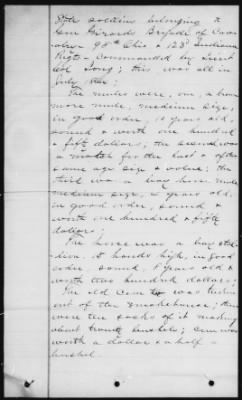 The soldiers belonging to
Gen Girards Brigade of Cav
98th Ohio & 128 Indiana
Regts. Commanded by Lieut
Col Song; this was all in
July 1864.
The mules were, one, a brown
mare mule, medium size,
in good order, 10 years old,
sound & worth one hundred
& fifty dollars; the second was
a match for the last & of the
same age size & color; the
third was a bay horse mule
medium size, years old,
in good order, sound &
worth one hundred & fifty
dollars;
The horse was a bay stal-
lion, 15 hands high, in good
order, sound, years old &
worth two hundred dollars;
The old Corn was taken
out of the smokehouse; there
were ten sacks of it making
about twenty bushels; corn was
worth a dollar & a half a
bushel.